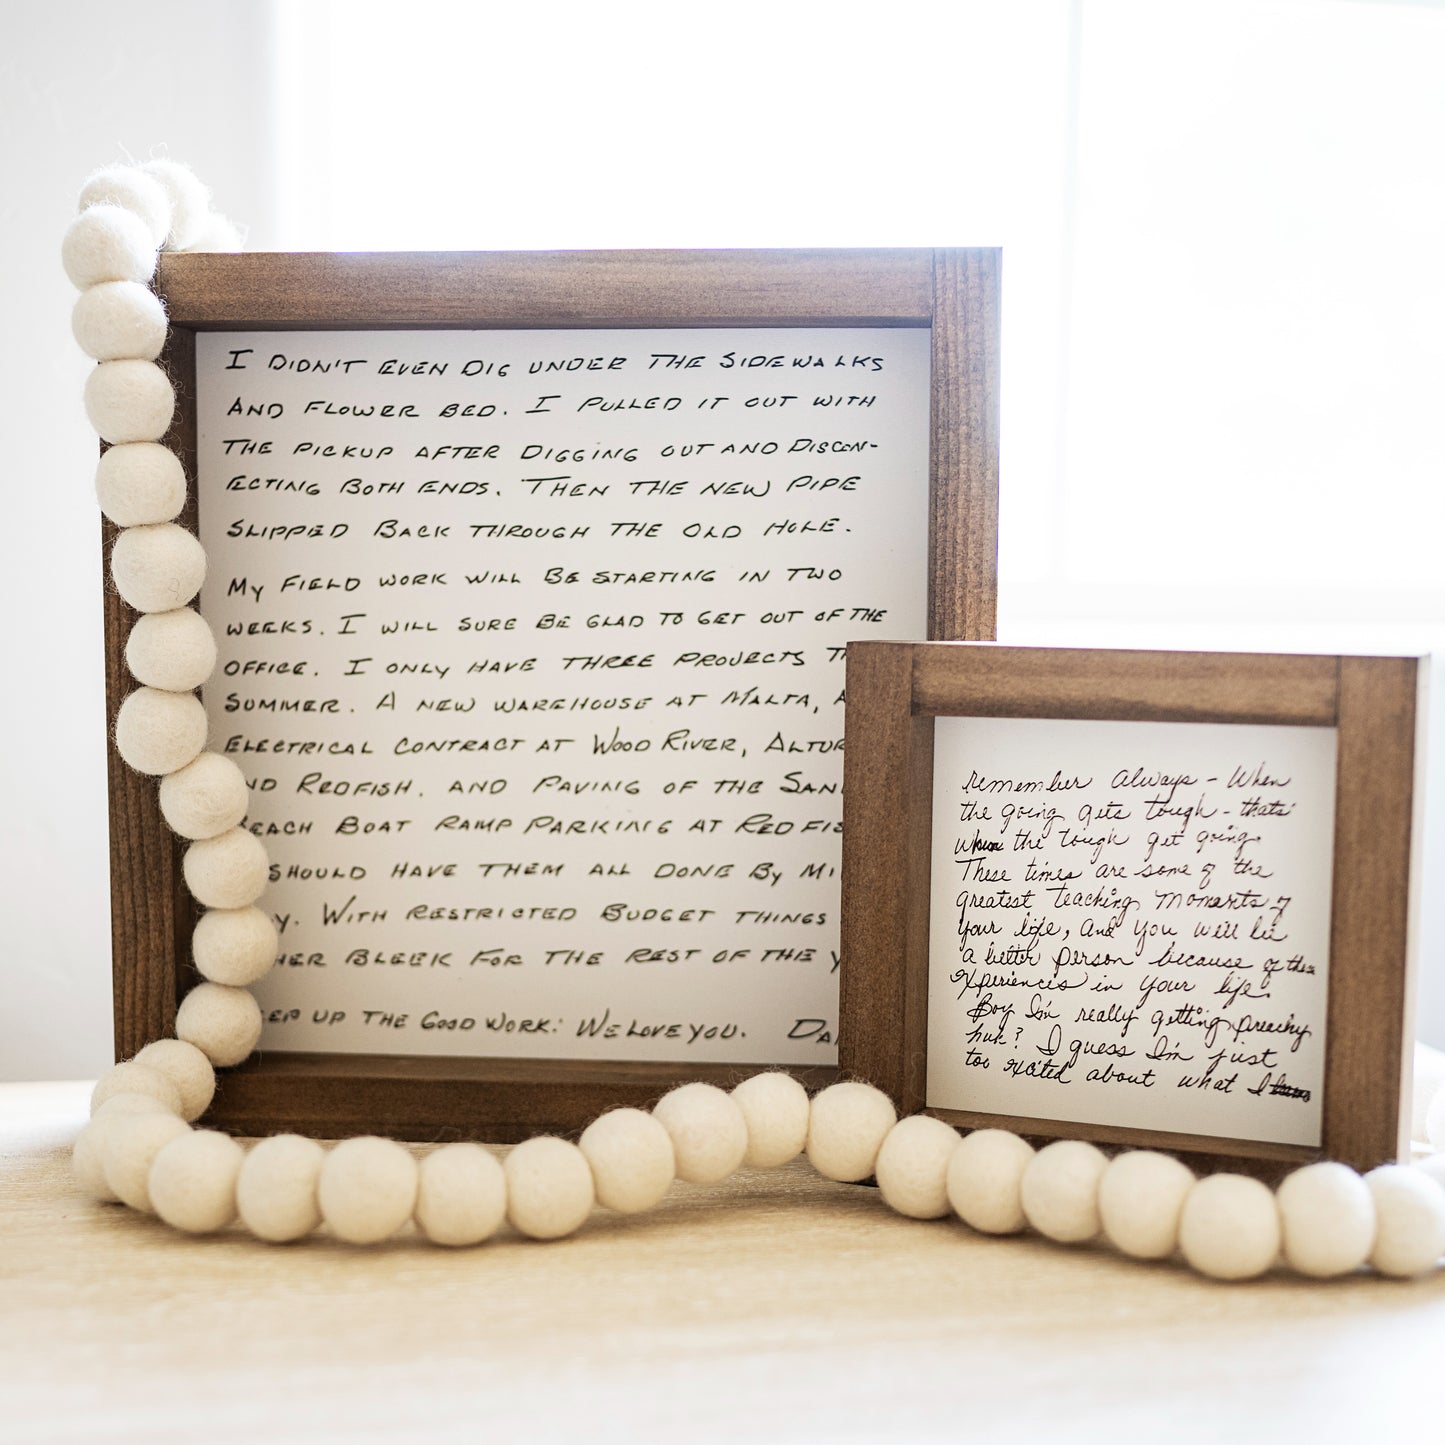 I DIDN'T EVEN DIG UNDER THE SIDEWALKS
AND FLOWER BED. I PULLED IT OUT WITH
THE PICKUP AFTER DIGGING OUT AND DISCON-
ECTING BOTH ENDS. THEN THE NEW PIPE
SLIPPED BACK THROUGH THE OLD HOLE.
MY FIELD WORK WILL BE STARTING IN TWO
WEEKS. I WILL SURE BE GLAD TO GET OUT OF THE
OFFICE. I ONLY HAVE THREE PROJECTS
SUMMER. A NEW WAREHOUSE AT MALTA,
ELECTRICAL CONTRACT AT WOOD RIVER, ALTUR
ND REDFISH. AND PAVING OF THE SAN
EACH BOAT RAMP PARKING AT REDFIS
SHOULD HAVE THEM ALL DONE BY MI
Y. WITH RESTRICTED BUDGET THINGS
HER BLEEK FOR THE REST OF THE Y
EEP UP THE GOOD WORK. WE LOVE YOU. DA
remember always - When
the going gets tough - thats'
When the tough get going.
These times are some of the
greatest teaching moments of
your life, and you will be
a better person because of these
experiences in your life.
Boy I'm really getting preachy
huh? I guess I'm just
too excited about what I